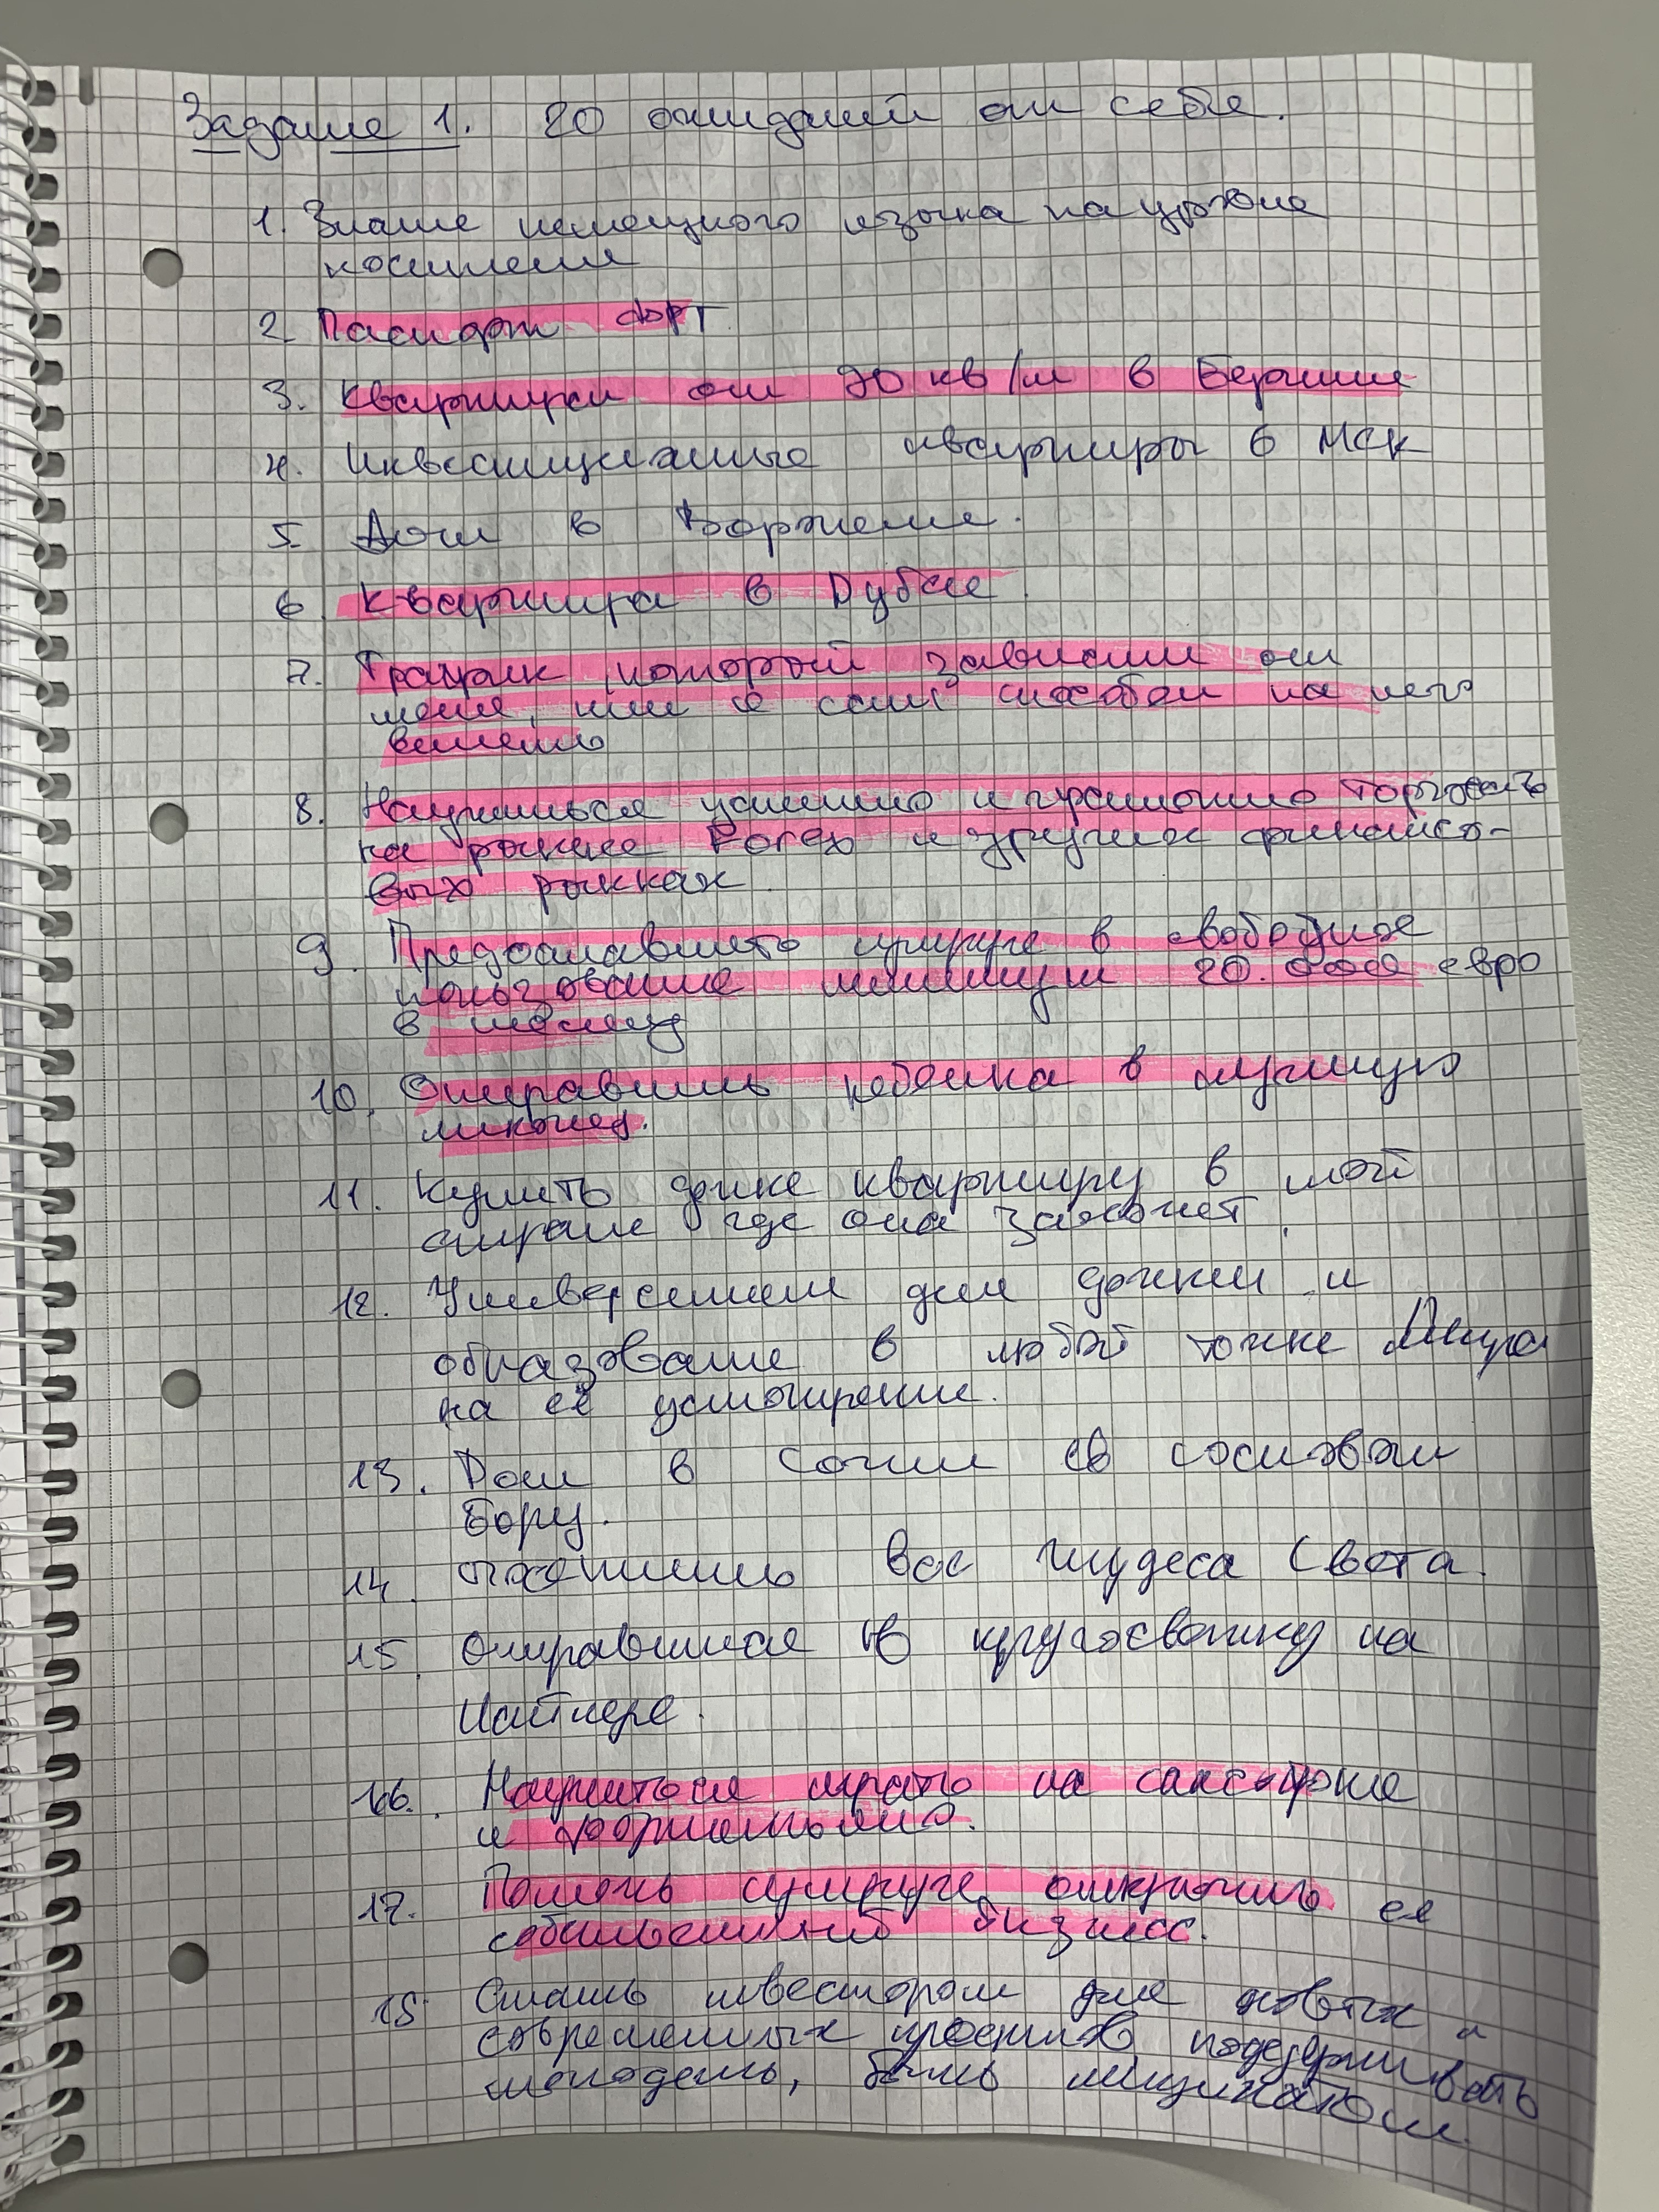 Задание 1. 20 ожиданий от себя.
1. Знание немецкого языка на уровне
носителя
2 Паспорт
3. Квартира от 90 кв/м в Берлине
4. Инвестиционные квартиры в МСК
5. Дом в Воронеже.
6. Квартира в Дубае.
7. График который зависит от
меня, или я сам способен на него
влиять
8. Научиться успешно и грамотно торговать
на рынке Forex и других финансо-
вых рынках.
9. Предоставить супруге в свободное
пользование минимум 20.000 евро
в месяц
10. Отправить ребенка в лучшую
школу.
11. Купить дочке квартиру в той
стране где она захочет.
12. Университет для дочки и
образование в любой точке Мира
на её усмотрение.
13. Дом в Сочи в сосновом
бору.
14. Посетить все чудеса Света.
15. Отправиться в кругосветку на
Лайнере.
16. Научиться играть на саксофоне
и фортепьяно.
17. Помочь супруге открыть ее
собственный бизнес.
18. Стать инвестором для новых и
современных проектов, поддерживать
молодежь, быть меценатом.